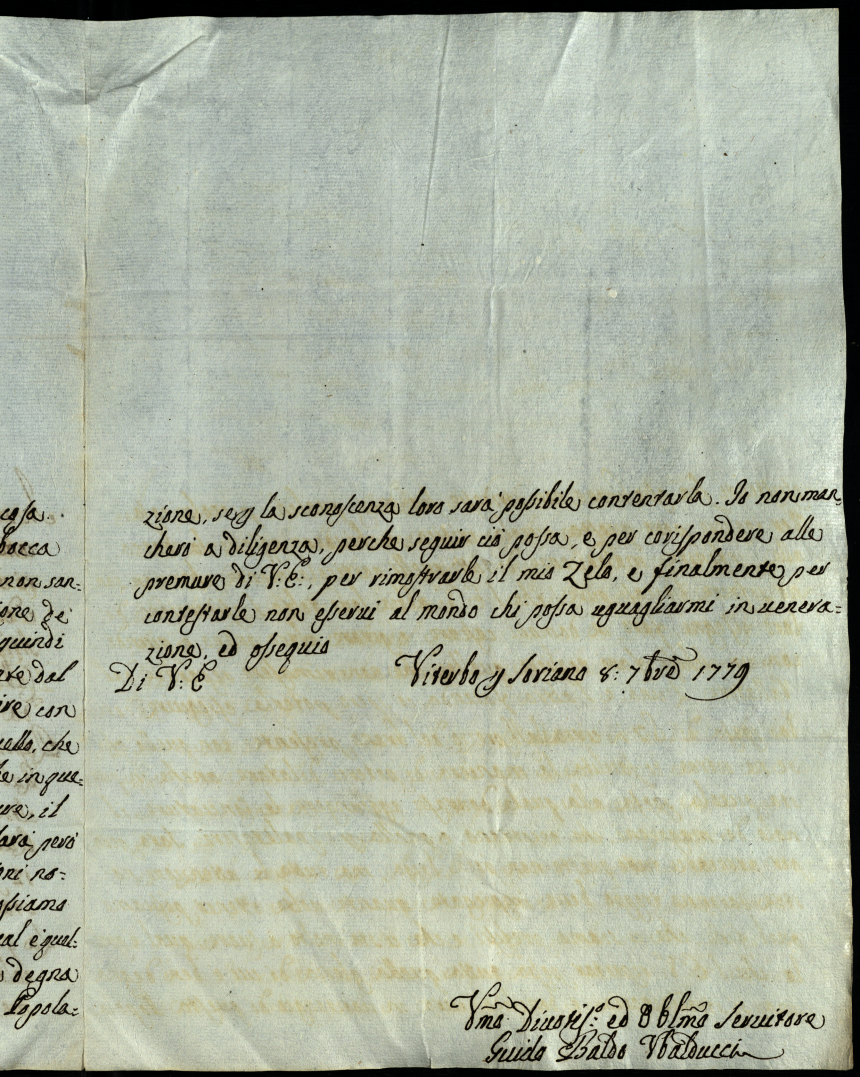 cosa.
bocca
non san-
ione de
quindi
are dal
ire con
uello, che
le in que-
ure, il
larà però
oni no-
ossiamo
ual equal-
degna
Popola-
zione, se la sconoscenza loro sarà possibile contentarla. Io non man-
charò a diligenza, perche seguir ciò possa, e per corispondere alle
premure di V. E:, per rimostrarle il mio Zelo, e finalmente per
contestarle non esservi al mondo chi possa uguagliarmi in venera-
zione, ed ossequio
Di V: E Viterbo Soriano 8: 7bre 1779
Vmo Divotiso: ed Obblmo Servitore
Guido Baldo Vbalducci